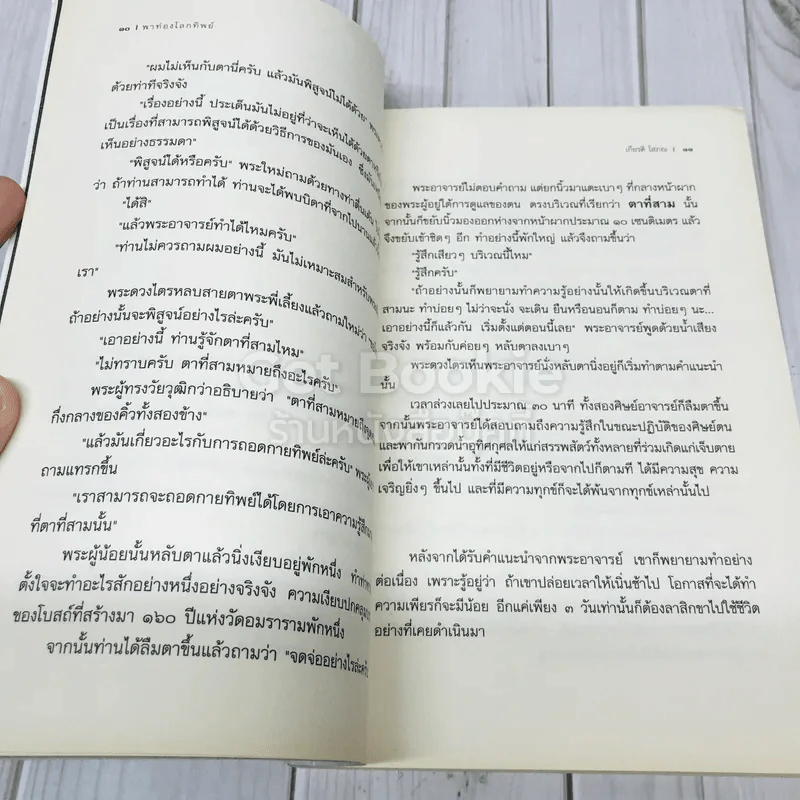 ๑๐ | พาท่องโลกทิพย์
"ผมไม่เห็นกับตานี่ครับ แล้วมันพิสูจน์ไม่ได้ด้วย"
ด้วยท่าทีจริงจัง
"เรื่องอย่างนี้ ประเด็นมันไม่อยู่ที่ว่าจะเห็นได้ด้วย
เป็นเรื่องที่สามารถพิสูจน์ได้ด้วยวิธีการของมันเอง
เห็นอย่างธรรมดา"
"พิสูจน์ได้หรือครับ" พระใหม่ถามด้วยท่าทางตื่นเต้น
ว่า ถ้าท่านสามารถทำได้ ท่านจะได้พบบิดาที่จากไป
"ได้สิ"
"แล้วพระอาจารย์ทำได้ไหมครับ"
"ท่านไม่ควรถามผมอย่างนี้ มันไม่เหมาะสมสำหรับ
เรา"
พระดวงไตรหลบสายตาพระพี่เลี้ยงแล้วถามใหม่ว่า
ถ้าอย่างนั้นจะพิสูจน์อย่างไรล่ะครับ"
"เอาอย่างนี้ ท่านรู้จักตาที่สามไหม"
"ไม่ทราบครับ ตาที่สามหมายถึงอะไรครับ"
พระผู้ทรงวัยวุฒิกว่าอธิบายว่า "ตาที่สามหมายถึง
กึ่งกลางของคิ้วทั้งสองข้าง"
"แล้วมันเกี่ยวอะไรกับการถอดกายทิพย์ล่ะครับ"
ถามแทรกขึ้น
"เราสามารถจะถอดกายทิพย์ได้โดยการเอาความรู้สึก
ที่ตาที่สามนั้น"
พระผู้น้อยนั้นหลับตาแล้วนิ่งเงียบอยู่พักหนึ่ง
ตั้งใจจะทำอะไรสักอย่างหนึ่งอย่างจริงจัง ความเงียบปกคลุม
ของโบสถ์ที่สร้างมา ๑๖๐ ปีแห่งวัดอมรารามพักหนึ่ง
จากนั้นท่านได้ลืมตาขึ้นแล้วถามว่า "จดจ่ออย่างไรล่ะครับ
เกียรติ โสภณ | ๑๑
พระอาจารย์ไม่ตอบคำถาม แต่ยกนิ้วมาแตะเบาๆ ที่กลางหน้าผาก
ของพระผู้อยู่ใต้การดูแลของตน ตรงบริเวณที่เรียกว่า ตาที่สาม นั้น
จากนั้นก็ขยับนิ้วมองออกห่างจากหน้าผากประมาณ ๑๐ เซนติเมตร แล้ว
จึงขยับเข้าชิดๆ อีก ทำอย่างนี้พักใหญ่ แล้วจึงถามขึ้นว่า
"รู้สึกเสียวๆ บริเวณนี้ไหม"
"รู้สึกครับ"
"ถ้าอย่างนั้นก็พยายามทำความรู้อย่างนั้นให้เกิดขึ้นบริเวณตาที่
สามนะ ทำบ่อยๆ ไม่ว่าจะนั่ง จะเดิน ยืนหรือนอนก็ตาม ทำบ่อยๆ นะ...
เอาอย่างนี้ก็แล้วกัน เริ่มตั้งแต่ตอนนี้เลย" พระอาจารย์พูดด้วยน้ำเสียง
จริงจัง พร้อมกับค่อยๆ หลับตาลงเบาๆ
พระดวงไตรเห็นพระอาจารย์นั่งหลับตานิ่งอยู่ก็เริ่มทำตามคำแนะนำ
นั้น
เวลาล่วงเลยไปประมาณ ๓๐ นาที ทั้งสองศิษย์อาจารย์ก็ลืมตาขึ้น
จากนั้นพระอาจารย์ได้สอบถามความรู้สึกในขณะปฏิบัติของศิษย์ตน
และพากันกรวดน้ำอุทิศกุศลให้แก่สรรพสัตว์ทั้งหลายที่ร่วมเกิดแก่เจ็บตาย
เพื่อให้เขาเหล่านั้นทั้งที่มีชีวิตอยู่หรือจากไปก็ตามที ได้มีความสุข ความ
เจริญยิ่งๆ ขึ้นไป และที่มีความทุกข์ก็จะได้พ้นจากทุกข์เหล่านั้นไป
หลังจากได้รับคำแนะนำจากพระอาจารย์ เขาก็พยายามทำอย่าง
ต่อเนื่อง เพราะรู้อยู่ว่า ถ้าเขาปล่อยเวลาให้เนิ่นช้าไป โอกาสที่จะได้ทำ
ความเพียรก็จะมีน้อย อีกแค่เพียง ๓ วันเท่านั้นก็ต้องลาสิกขาไปใช้ชีวิต
อย่างที่เคยดำเนินมา
Got Bookie